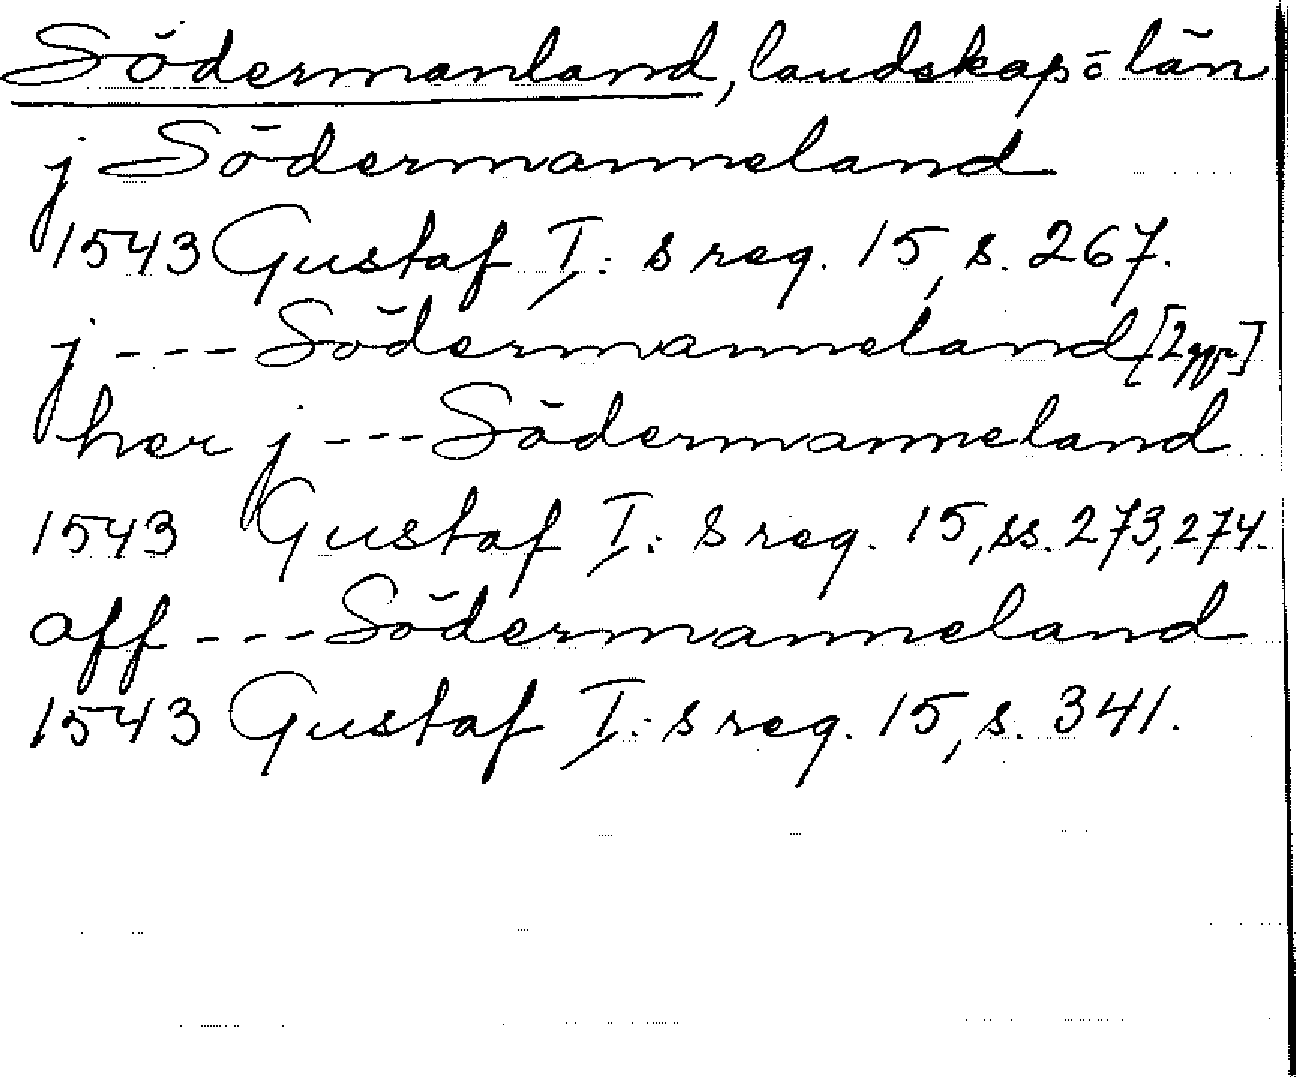 Södermanland, landskap o län
j Södermanneland
1543 Gustaf I:s reg. 15, s. 267.
j --- Södermanneland [2 ggr]
her j --- Södermanneland
1543 Gustaf I:s reg. 15, ss. 273, 274.
aff --- Södermanneland
1543 Gustaf I:s reg. 15, s. 341.